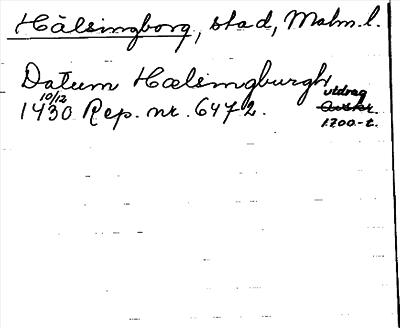 Hälsingborg, stad, Malm.l.
Datum Hælsingburgh utdrag
10/12
1430 Rep. nr. 6472. Avskr.
1200-t.